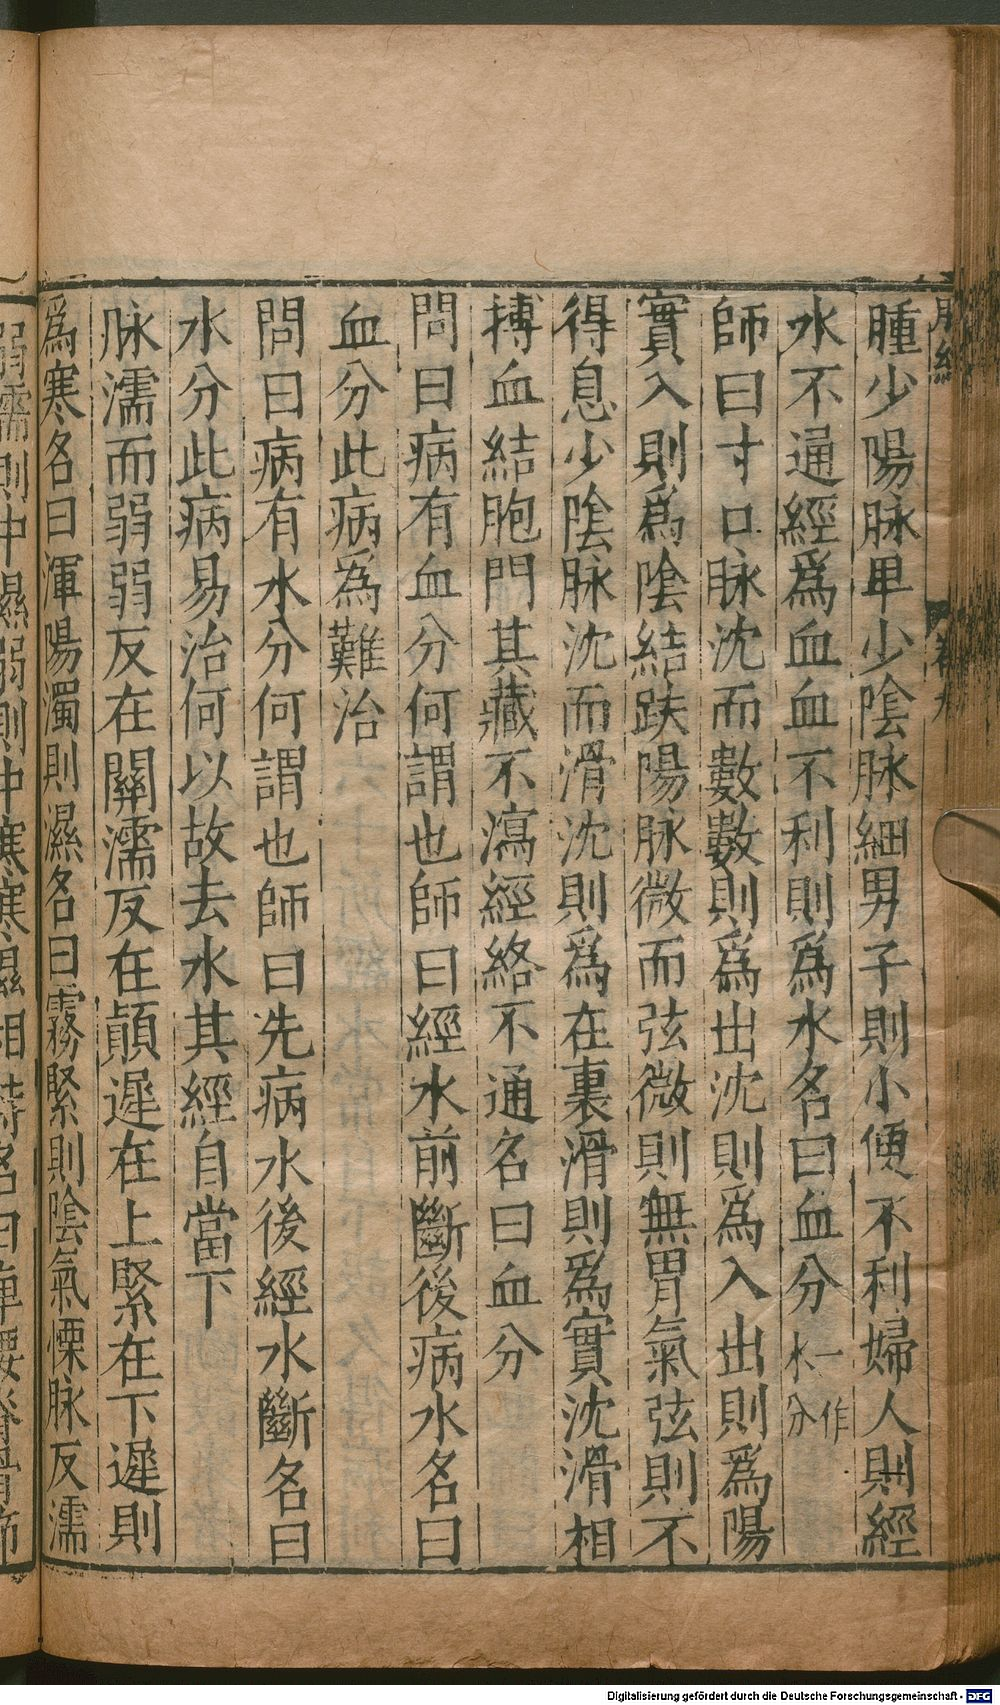 腫少陽脉卑少陰脉細男子則小便不利婦人則經
水不通經爲血血不利則爲水名曰血分一作水分
師曰寸口脉沈而數數則爲出沈則爲入出則爲陽
實入則爲陰結趺陽脉微而弦微則無胃氣弦則不
得息少陰脉沈而滑沈則爲在裏滑則爲實沈滑相
搏血結胞門其藏不瀉經絡不通名曰血分
問曰病有血分何謂也師曰經水前斷後病水名曰
血分此病爲難治
問曰病有水分何謂也師曰先病水後經水斷名曰
水分此病易治何以故去水其經自當下
脉濡而弱弱反在關濡反在顛遲在上緊在下遲則
爲寒名曰渾陽濁則濕名曰霧緊則陰氣慄脉反濡
弱濡則中濕弱則中寒寒濕相
Digitalisierung gefördert durch die Deutsche Forschungsgemeinschaft - DFG